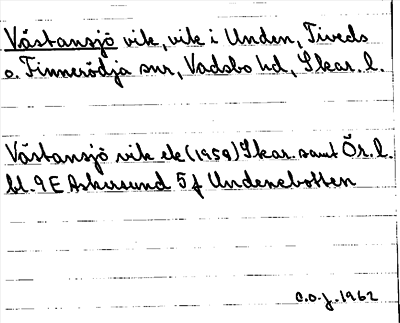 Västansjö vik, vik i Unden, Tiveds
o. Finnerödja snr, Vadsbo hd, Skar. l.
Västansjö vik ek (1959) Skar. samt Ör. l.
bl. 9 E Askersund 5 f Undenebotten
C.O.J. 1962